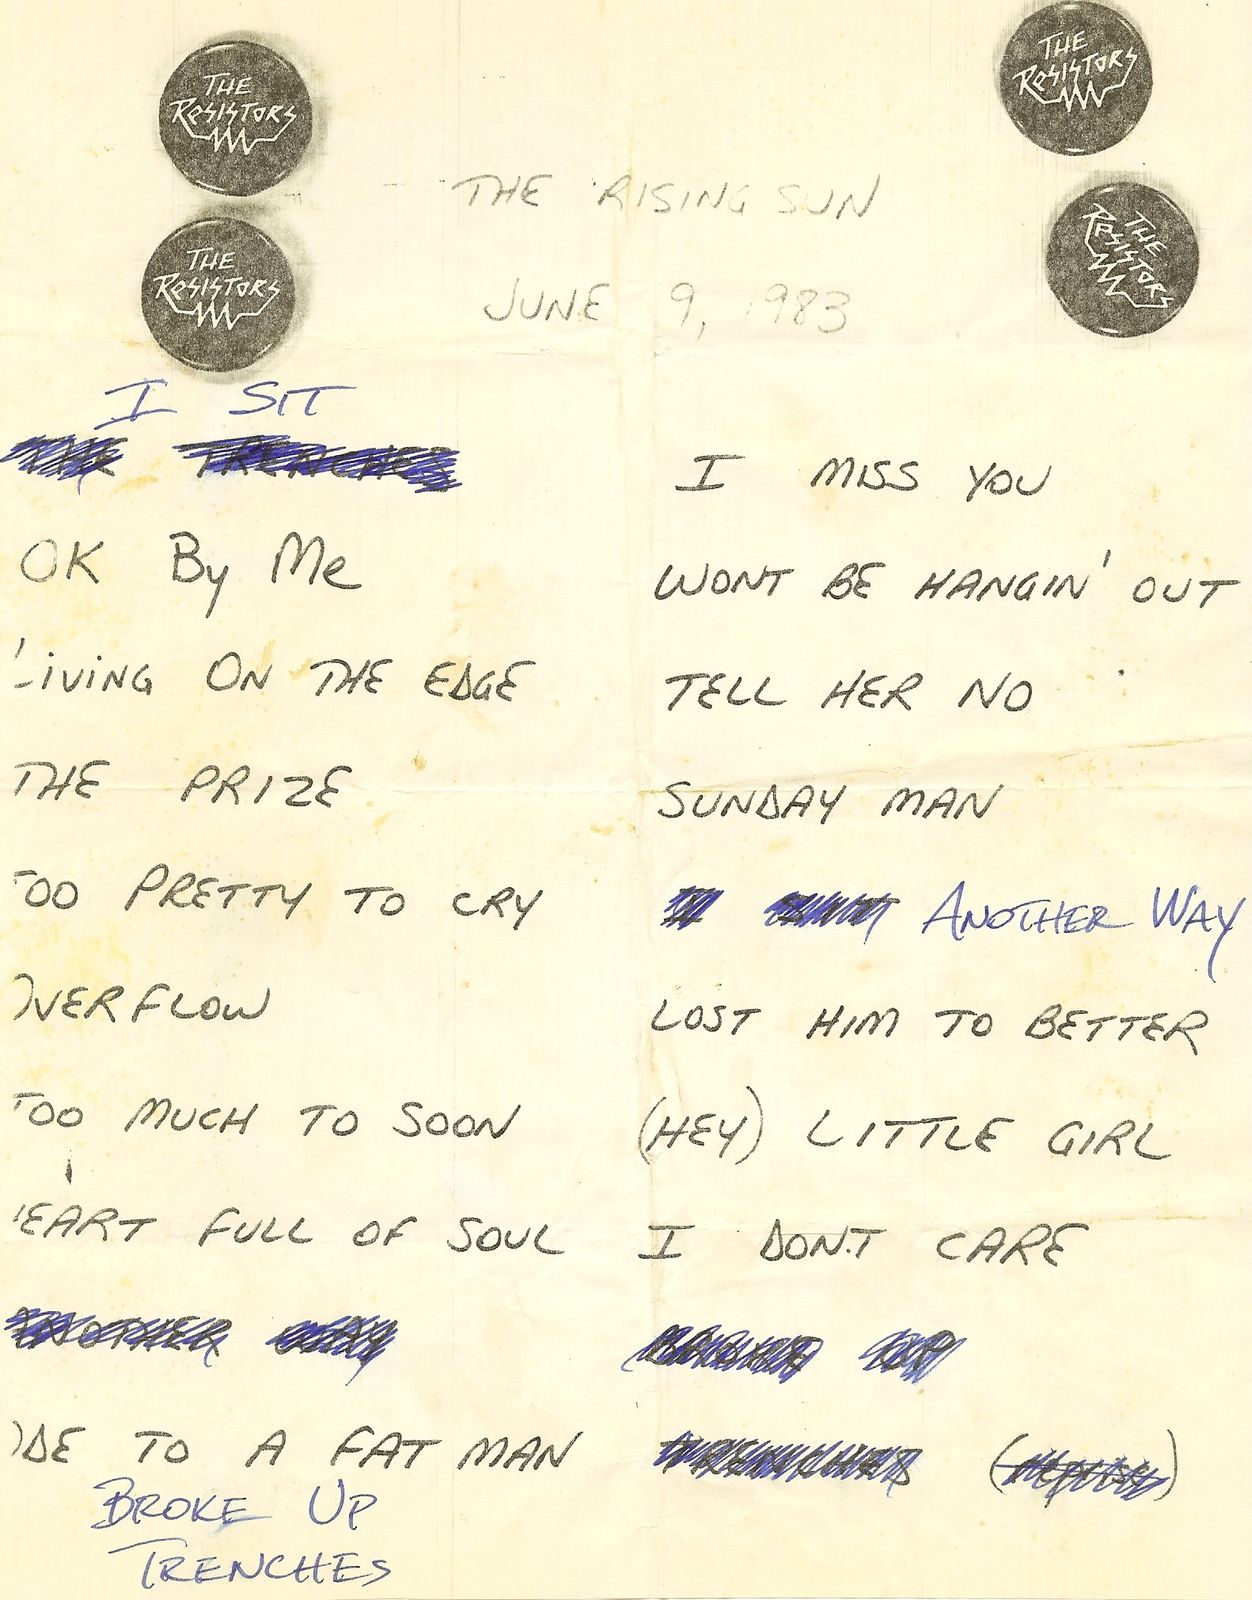 THE
RESISTORS
THE
RESISTORS
THE
RESISTORS
THE
RESISTORS
THE RISING SUN
JUNE 9, 1983
I SIT
TRENCHES
OK By Me
LIVING ON THE EDGE
THE PRIZE
TOO PRETTY TO CRY
OVERFLOW
TOO MUCH TO SOON
HEART FULL OF SOUL
ANOTHER WAY
ODE TO A FAT MAN
BROKE UP
TRENCHES
I MISS YOU
WONT BE HANGIN' OUT
TELL HER NO
SUNDAY MAN
ANOTHER WAY
LOST HIM TO BETTER
(HEY) LITTLE GIRL
I DON'T CARE
TRENCHES